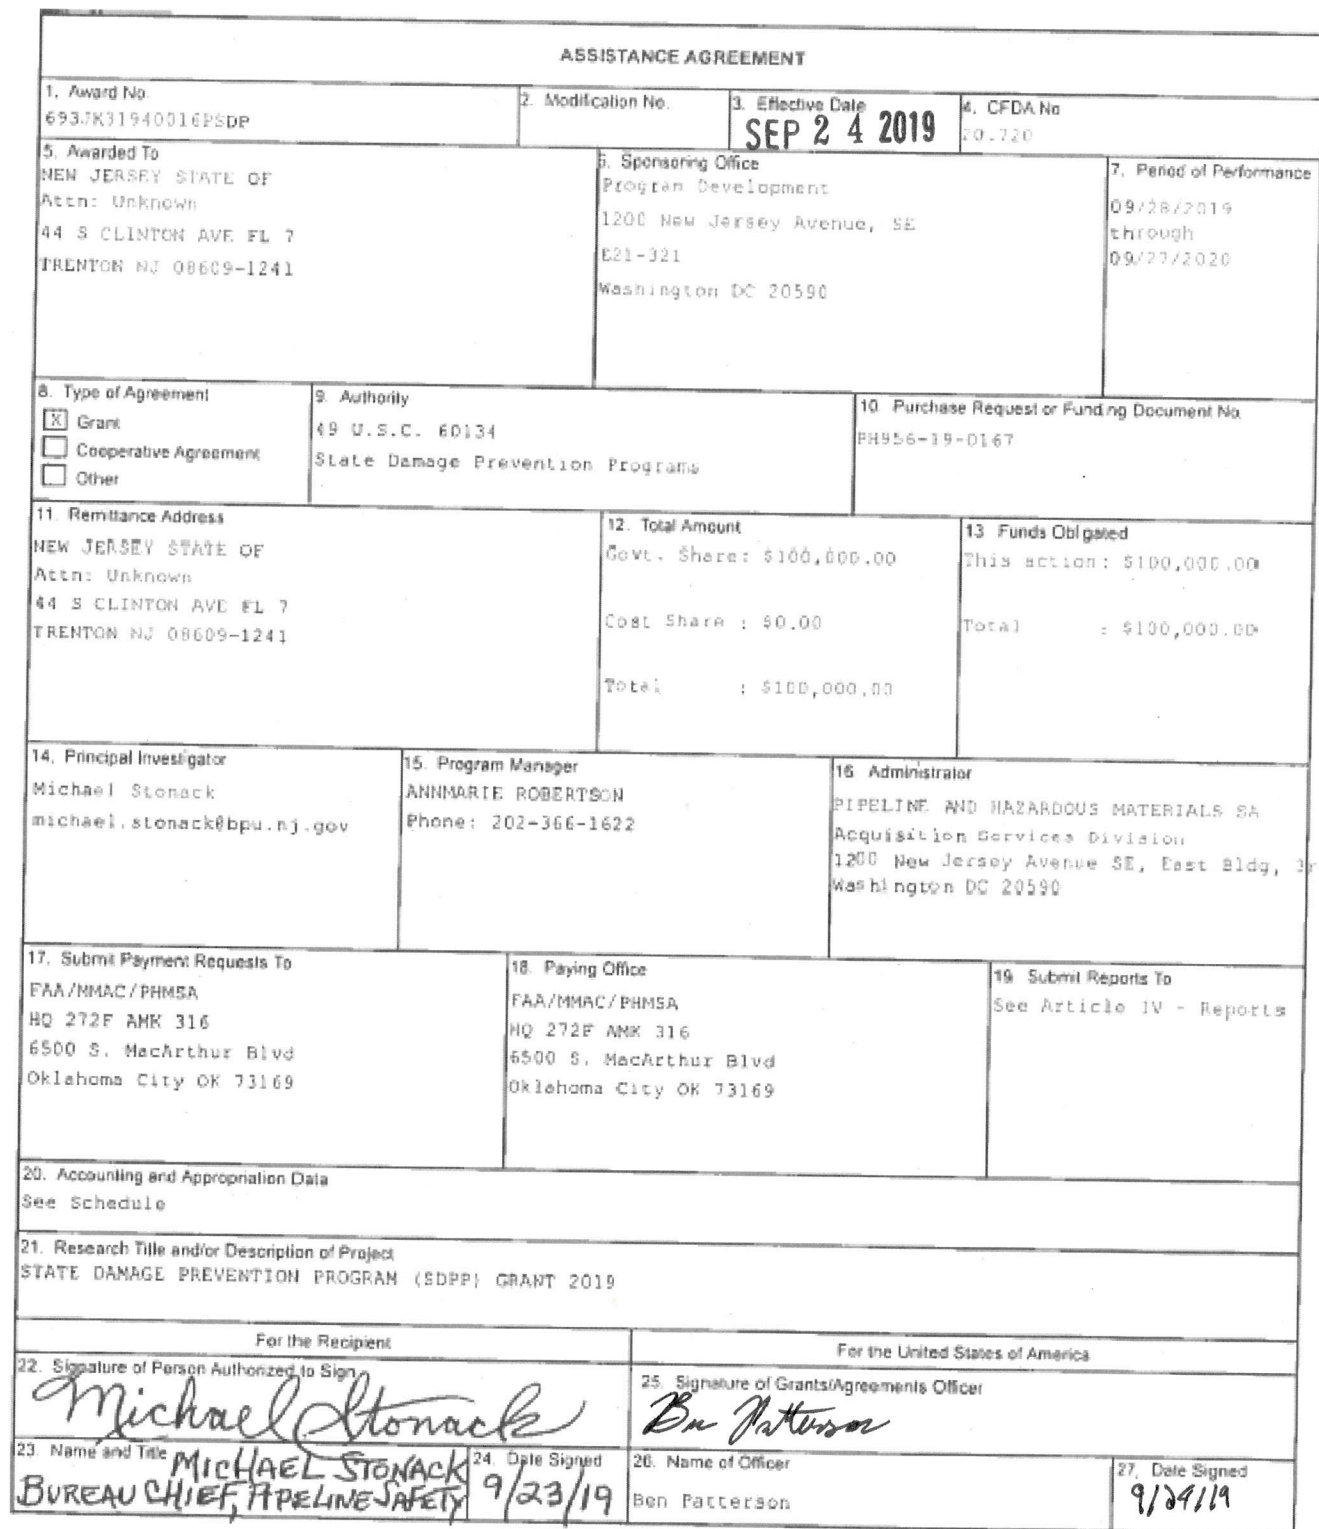 ASSISTANCE AGREEMENT
1. Award No.
693JK31940016PSDP
2. Modification No.
3. Effective Date
SEP 24 2019
4. CFDA No
20.720
5. Awarded To
NEW JERSEY STATE OF
Attn: Unknown
44 S CLINTON AVE FL 7
TRENTON NJ 08609-1241
6. Sponsoring Office
Program Development
1200 New Jersey Avenue, SE
E21-321
Washington DC 20590
7. Period of Performance
09/28/2019
through
09/27/2020
8. Type of Agreement
X Grant
Cooperative Agreement
Other
9. Authority
49 U.S.C. 60134
State Damage Prevention Programs
10. Purchase Request or Funding Document No.
PH956-19-0167
11. Remittance Address
NEW JERSEY STATE OF
Attn: Unknown
44 S CLINTON AVE FL 7
TRENTON NJ 08609-1241
12. Total Amount
Govt. Share: $100,000.00
Cost Share : $0.00
Total : $100,000.00
13 Funds Obligated
This action: $100,000.00
Total : $100,000.00
14. Principal Investigator
Michael Stonack
michael.stonack@bpu.nj.gov
15. Program Manager
ANNMARIE ROBERTSON
Phone: 202-366-1622
16 Administrator
PIPELINE AND HAZARDOUS MATERIALS SA
Acquisition Services Division
1200 New Jersey Avenue SE, East Bldg, 3r
Washington DC 20590
17. Submit Payment Requests To
FAA/MMAC/PHMSA
HQ 272F AMK 316
6500 S. MacArthur Blvd
Oklahoma City OK 73169
18. Paying Office
FAA/MMAC/PHMSA
HQ 272F AMK 316
6500 S. MacArthur Blvd
Oklahoma City OK 73169
19 Submit Reports To
See Article IV - Reports
20. Accounting and Appropriation Data
See Schedule
21. Research Title and/or Description of Project
STATE DAMAGE PREVENTION PROGRAM (SDPP) GRANT 2019
For the Recipient
For the United States of America
22. Signature of Person Authorized to Sign
Michael Stonack
25. Signature of Grants/Agreements Officer
Ben Patterson
23. Name and Title MICHAEL STONACK
BUREAU CHIEF, PIPELINE SAFETY
24. Date Signed
9/23/19
26. Name of Officer
Ben Patterson
27. Date Signed
9/24/19